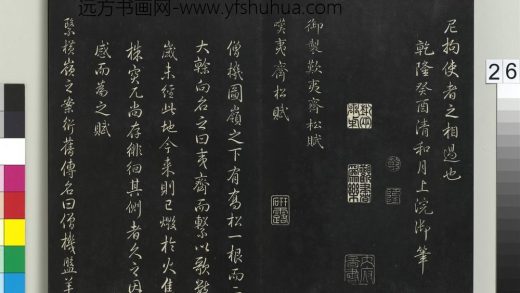 远方书画网-www.yfshuhua.com
尼拘使者之相遇也
乾隆癸酉清和月上浣御筆
御製歎夷齊松賦
嘆夷齊松賦
僧機圖嶺之下有喬松一根而二
大榦向名之曰夷齊而繫以歌
歲未經此地今來則已燬於火
株突兀尚存徘徊其側者久之因
感而為之賦
繄橫嶺之案衍舊傳名曰僧機盤羊
研露
26